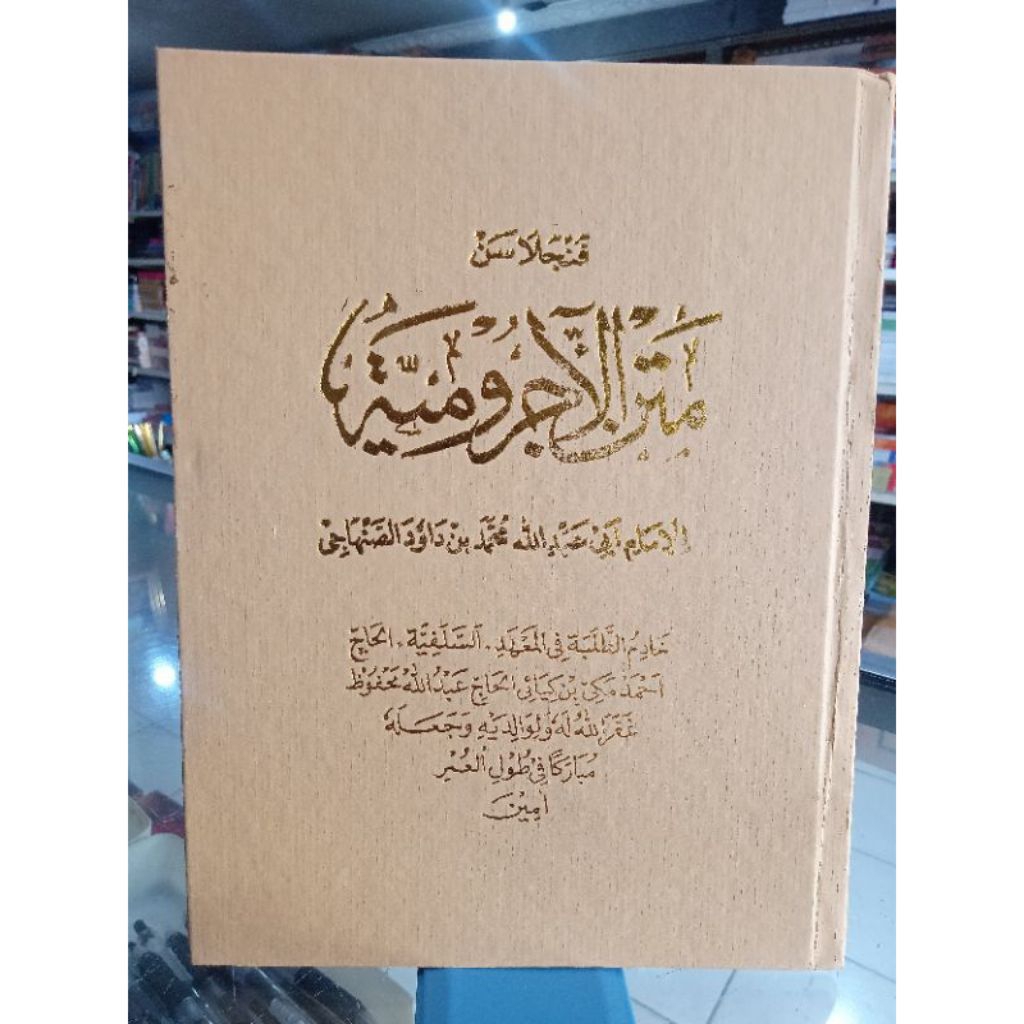 فَنْجَلَا سَنْ
مَتْنُ الْآجُرُّومِيَّةُ
الإِمَامِ أَبِيْ عَبْدِ اللّٰه مُحَمَّدْ بِنْ دَاوُدَ الصَّنْهَاجِيْ
خَادِمُ الطَّلَبَةِ فِي المَعْهَدِ - السَّلَفِيَّة - الحَاجّ
اَحْمَدْ مَكِيْ بِنْ كِيَائِى الحَاجّ عَبْدُ اللّٰه مَحْفُوْظْ
غَفَرَ اللّٰهُ لَهُ وَلِوَالِدَيْهِ وَجَعَلَهُ
مُبَارَكًا فِيْ طُوْلِ الْعُمْرِ
اٰمِيْنَ